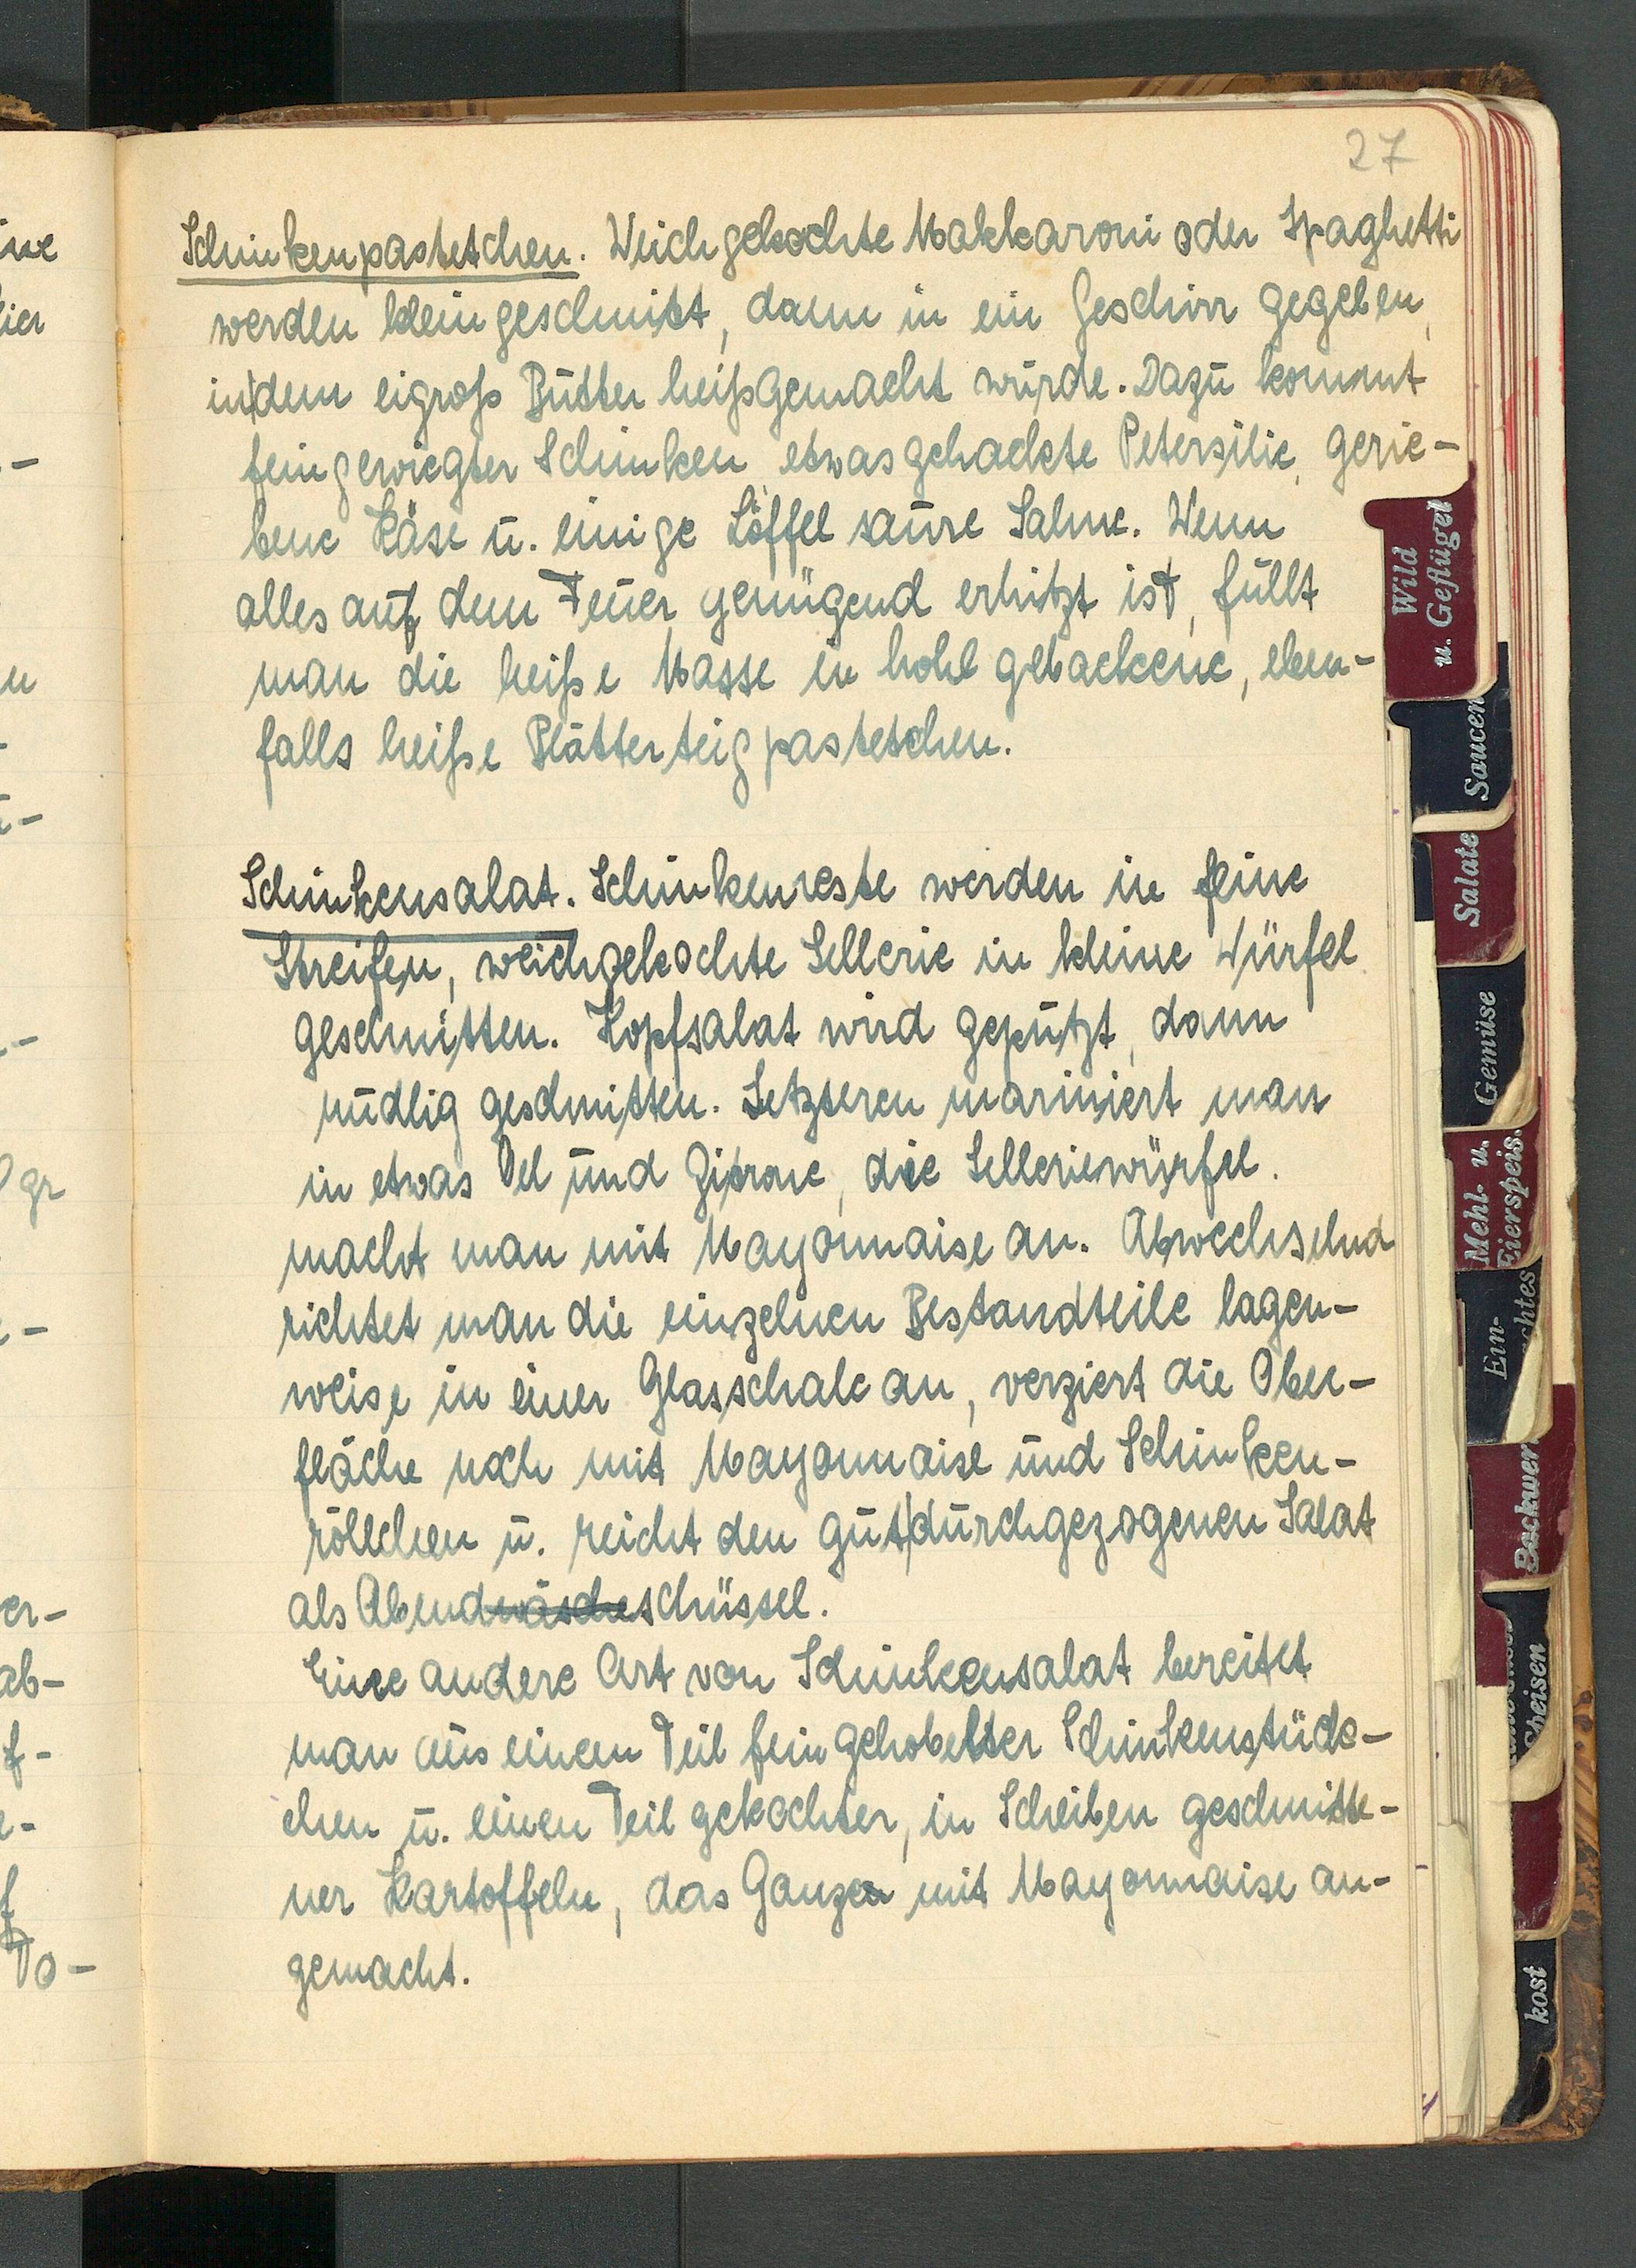 27
Schinkenpastetchen. Weichgekochte Makkaroni oder Spaghetti
werden kleingeschnitt, dann in ein Geschirr gegeben,
in dem eigroß Butter heißgemacht wurde. Dazu kommt
feingewiegter Schinken, etwas gehackte Petersilie, gerie-
bene Käse u. einige Löffel saure Sahne. Wenn
alles auf dem Feuer genügend erhitzt ist, füllt
man die heiße Masse in hohl gebackene, eben-
falls heiße Blätterteigpastetchen.
Schinkensalat. Schinkenreste werden in feine
Streifen, weichgekochte Sellerie in kleine Würfel
geschnitten. Kopfsalat wird geputzt, dann
nudlig geschnitten. Letzteren mariniert man
in etwas Oel und Zitrone, die Selleriewürfel.
macht man mit Mayonnaise an. Abwechselnd
richtet man die einzelnen Bestandteile lagen-
weise in einer Glasschale an, verziert die Ober-
fläche noch mit Mayonnaise und Schinken-
röllchen u. reicht den gut durchgezogenen Salat
als Abendschüssel.
Eine andere Art von Schinkensalat bereitet
man aus einem Teil fein gehobelter Schinkenstück-
chen u. einen Teil gekochter, in Scheiben geschnitte-
ner Kartoffeln, das Ganze mit Mayonnaise an-
gemacht.
Wild
u. Geflügel
Saucen
Salate
Gemüse
Mehl- u.
Eierspeis.
Ein-
chtes
Backwer
Speisen
kost
ine
lier
gr
er-
ab-
f-
f
To-